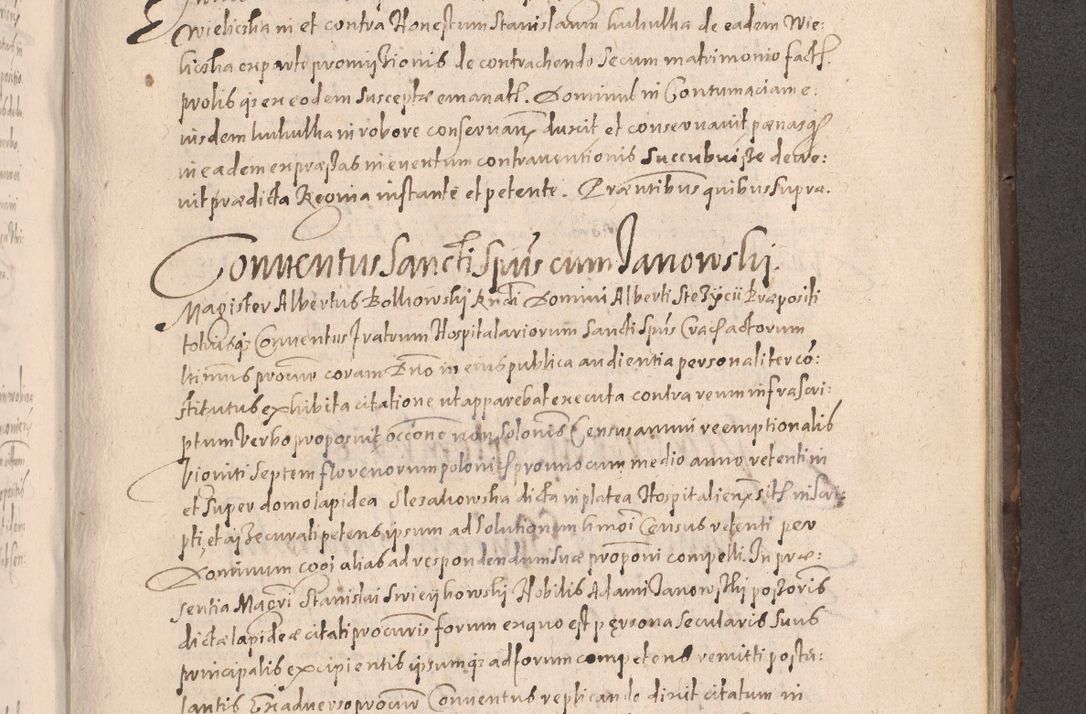 Wielicska in et contra Honestum Stanislaum kukulka de eadem Wie:
licska ex parte promissionis de contrahendo secum matrimonio fact.
prolis qz ex eodem susceptæ emanat. Dominus in Contumaciam e:
iusdem kukulka in robore conservan duxit et conservavit pænasqz
in eadem expressas in eventum contraventionis succubuisse decre:
vit prædicta Regina instante et petente. Præsentibus quibus supra.
Conventus Sancti Spūs cum Janowski.
Magister Albertus Bolkowski Rndi Domini Alberti Præpositi
totiusqz Conventus fratrum Hospitalariorum Sancti Spūs Crac actorum
ltimus procur coram Dno in eius publica audientia personaliter co:
stitutus exhibita citatione ut apparebat executa contra reum infrascri:
ptum verbo proposuit occone non solonis Census annui reemptionalis
viginti septem florenorum polonicl pro uno cum medio anno retenti in
et super domo lapidea dicta in platea Hospitalien sit inscri:
pti, et petens ipsum ad solutionem hmoi Census retenti per
Dominum cogi alias ad respondendum suæ proponi compelli. In præ:
sentia Magri Stanislai Nobilis Adami Janowski possoris
dictæ lapideæ citati procuris forum ex quo est persona secularis suus
principalis excipientis ipsumqz ad forum competens remitti postu:
lantis Ex adverso procur Conventus replicando dixit citatum in